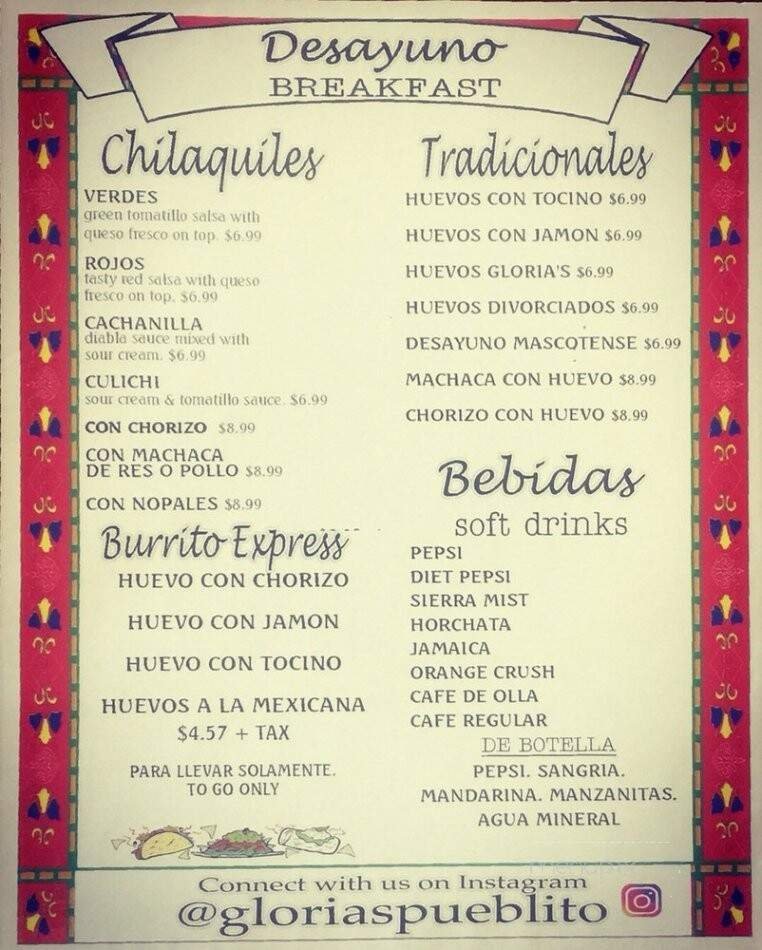 Desayuno
BREAKFAST
Chilaquiles
VERDES
green tomatillo salsa with
queso fresco on top. $6.99
ROJOS
tasty red salsa with queso
fresco on top. $6.99
CACHANILLA
diabla sauce mixed with
sour cream. $6.99
CULICHI
sour cream & tomatillo sauce. $6.99
CON CHORIZO $8.99
CON MACHACA
DE RES O POLLO $8.99
CON NOPALES $8.99
Burrito Express
HUEVO CON CHORIZO
HUEVO CON JAMON
HUEVO CON TOCINO
HUEVOS A LA MEXICANA
$4.57 + TAX
PARA LLEVAR SOLAMENTE.
TO GO ONLY
Tradicionales
HUEVOS CON TOCINO $6.99
HUEVOS CON JAMON $6.99
HUEVOS GLORIA'S $6.99
HUEVOS DIVORCIADOS $6.99
DESAYUNO MASCOTENSE $6.99
MACHACA CON HUEVO $8.99
CHORIZO CON HUEVO $8.99
Bebidas
soft drinks
PEPSI
DIET PEPSI
SIERRA MIST
HORCHATA
JAMAICA
ORANGE CRUSH
CAFE DE OLLA
CAFE REGULAR
DE BOTELLA
PEPSI. SANGRIA.
MANDARINA. MANZANITAS.
AGUA MINERAL
Connect with us on Instagram
@gloriaspueblito